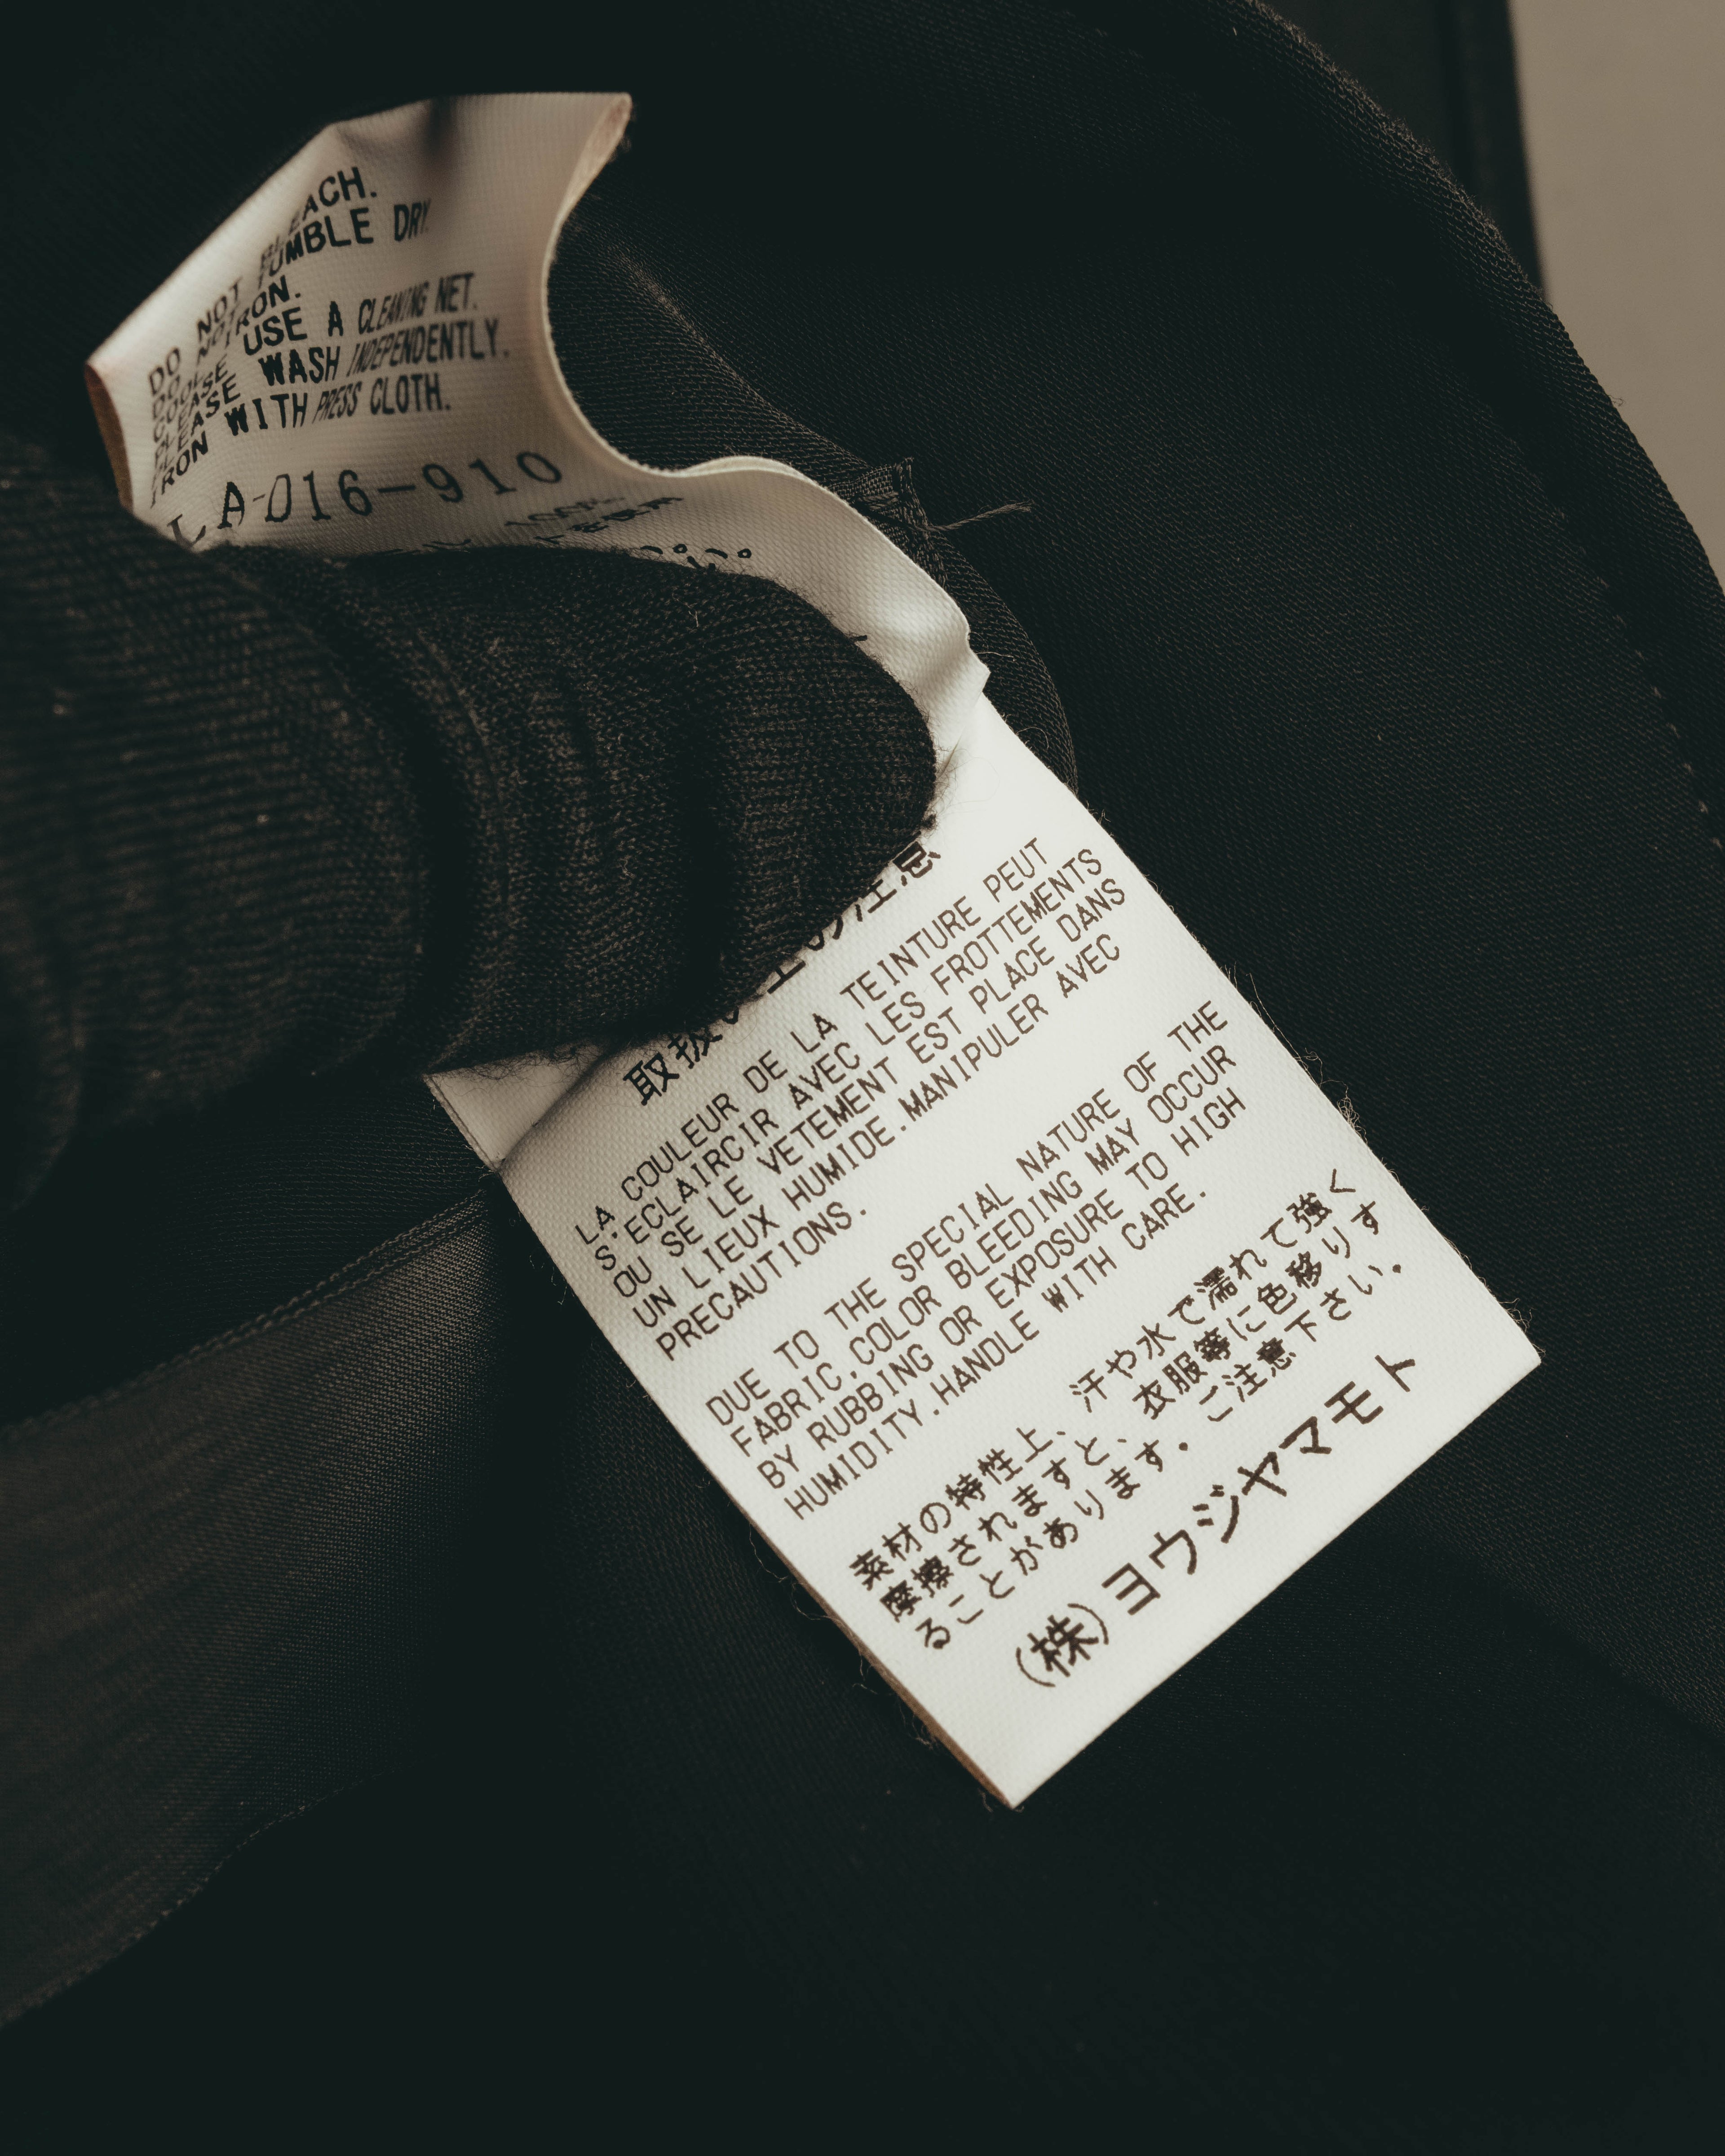 DO NOT BLEACH.
DO NOT TUMBLE DRY.
IRON.
PLEASE USE A CLEANING NET.
PLEASE WASH INDEPENDENTLY.
IRON WITH PRESS CLOTH.
LA-016-910
取扱い上の注意
LA COULEUR DE LA TEINTURE PEUT
S'ECLAIRCIR AVEC LES FROTTEMENTS
OU SE LE VETEMENT EST PLACE DANS
UN LIEUX HUMIDE.MANIPULER AVEC
PRECAUTIONS.
DUE TO THE SPECIAL NATURE OF THE
FABRIC,COLOR BLEEDING MAY OCCUR
BY RUBBING OR EXPOSURE TO HIGH
HUMIDITY.HANDLE WITH CARE.
素材の特性上、汗や水で濡れて強く
摩擦されますと、衣服等に色移りす
ることがあります。ご注意下さい。
(株)ヨウジヤマモト